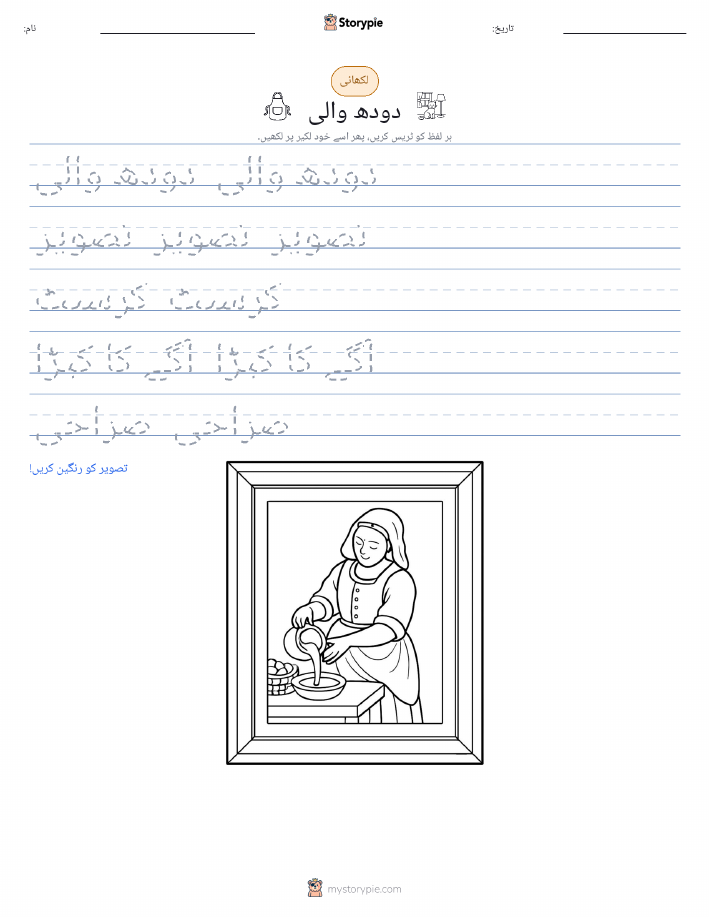 نام:
Storypie
تاریخ:
لکھائی
دودھ والی
ہر لفظ کو ٹریس کریں، پھر اسے خود لکیر پر لکھیں۔
دودھ والی دودھ والی
تصویر تصویر تصویر
کرسٹ کرسٹ
آگے کا کپڑا آگے کا کپڑا
صراحی صراحی
تصویر کو رنگین کریں!
mystorypie.com